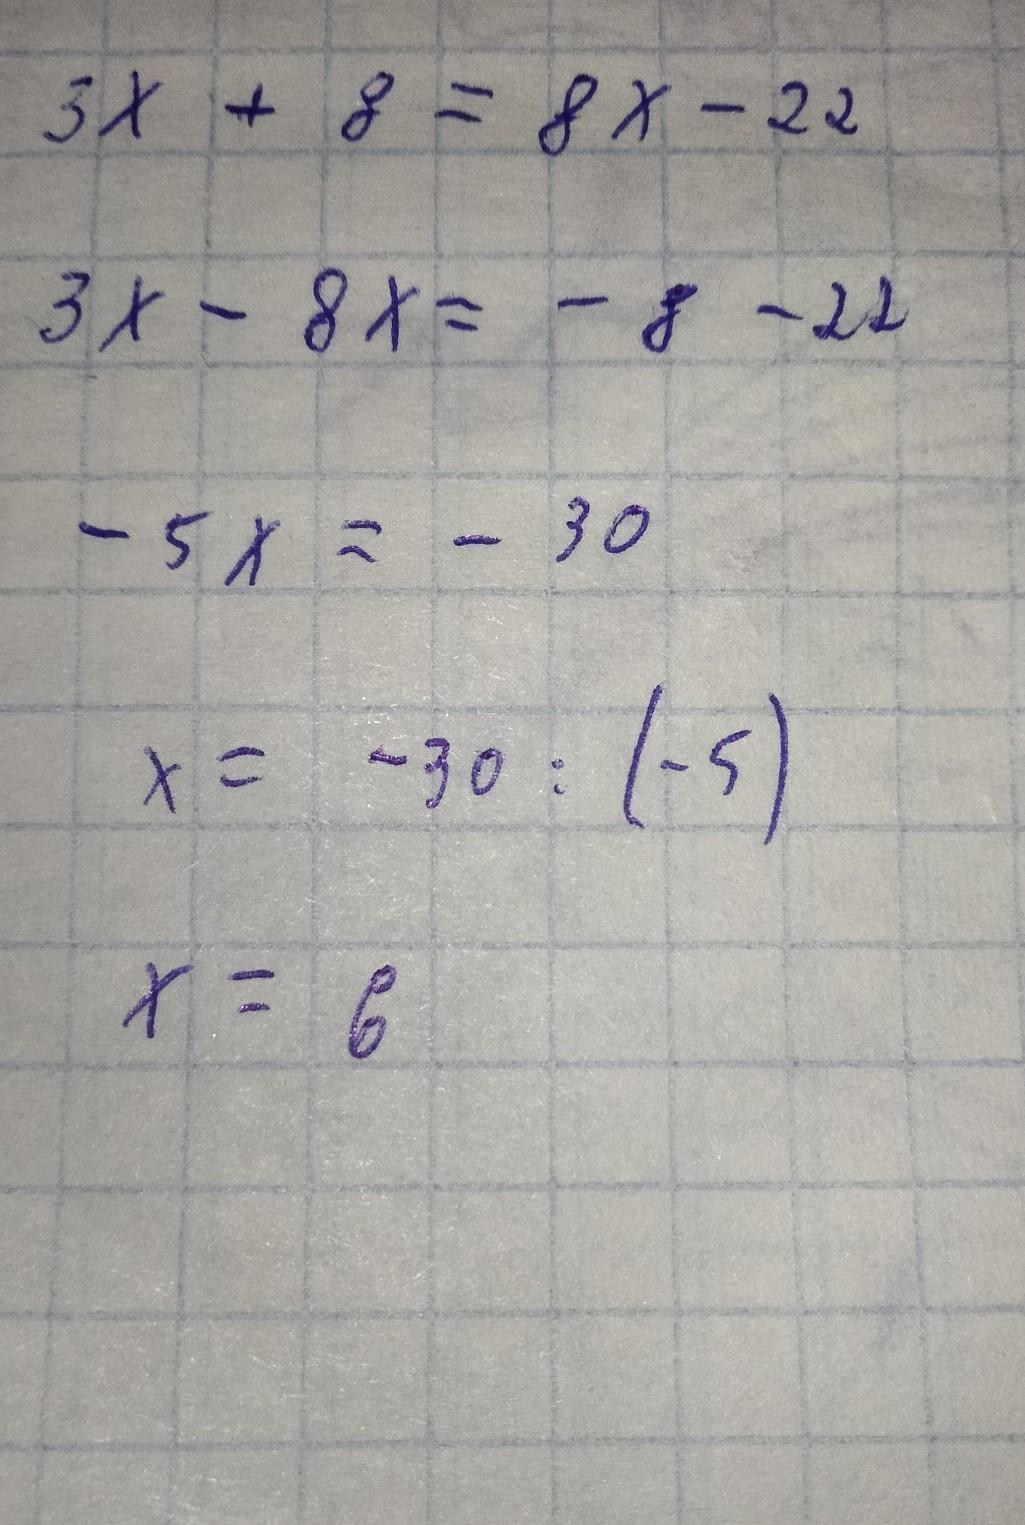 3x + 8 = 8x - 22
3x - 8x = - 8 - 22
- 5x = - 30
x = -30 : (-5)
x = 6